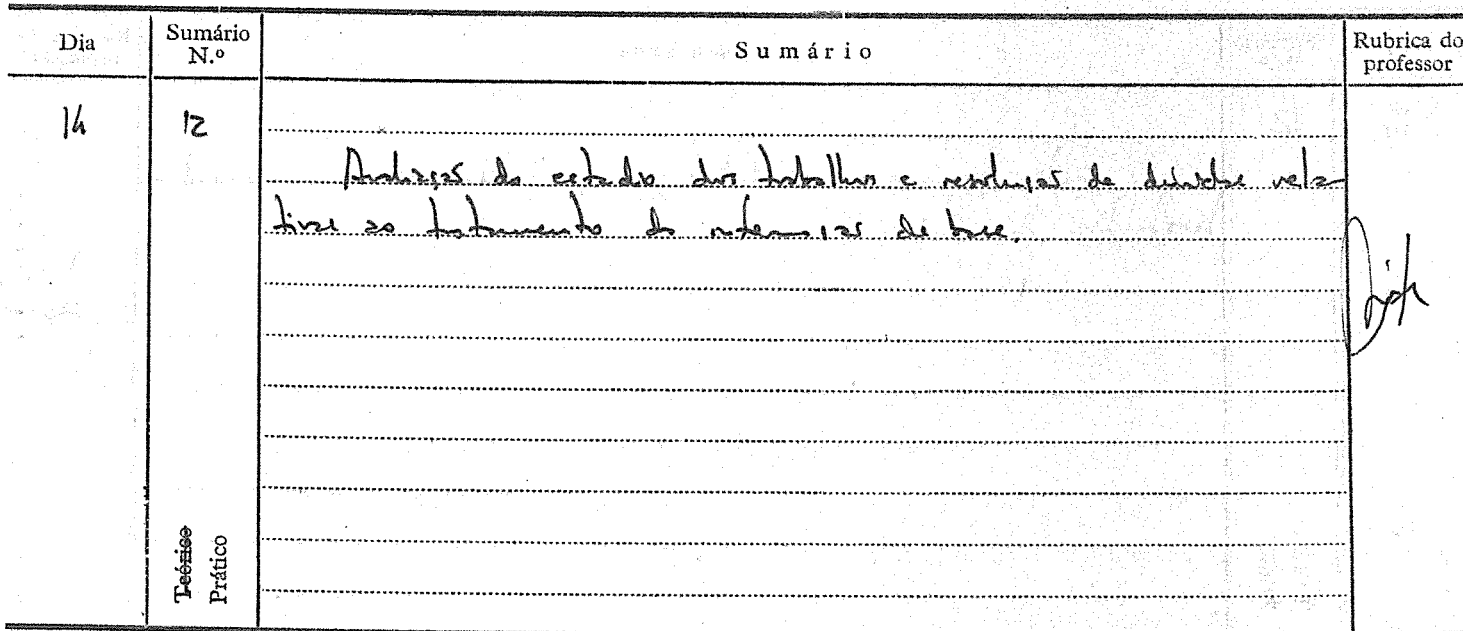 Dia
Sumário
N.º
Sumário
Rubrica do
professor
14
12
Avaliação do estado dos trabalhos e resolução de dúvidas rela-
tivas ao tratamento da informação de base.
Teórico
Prático